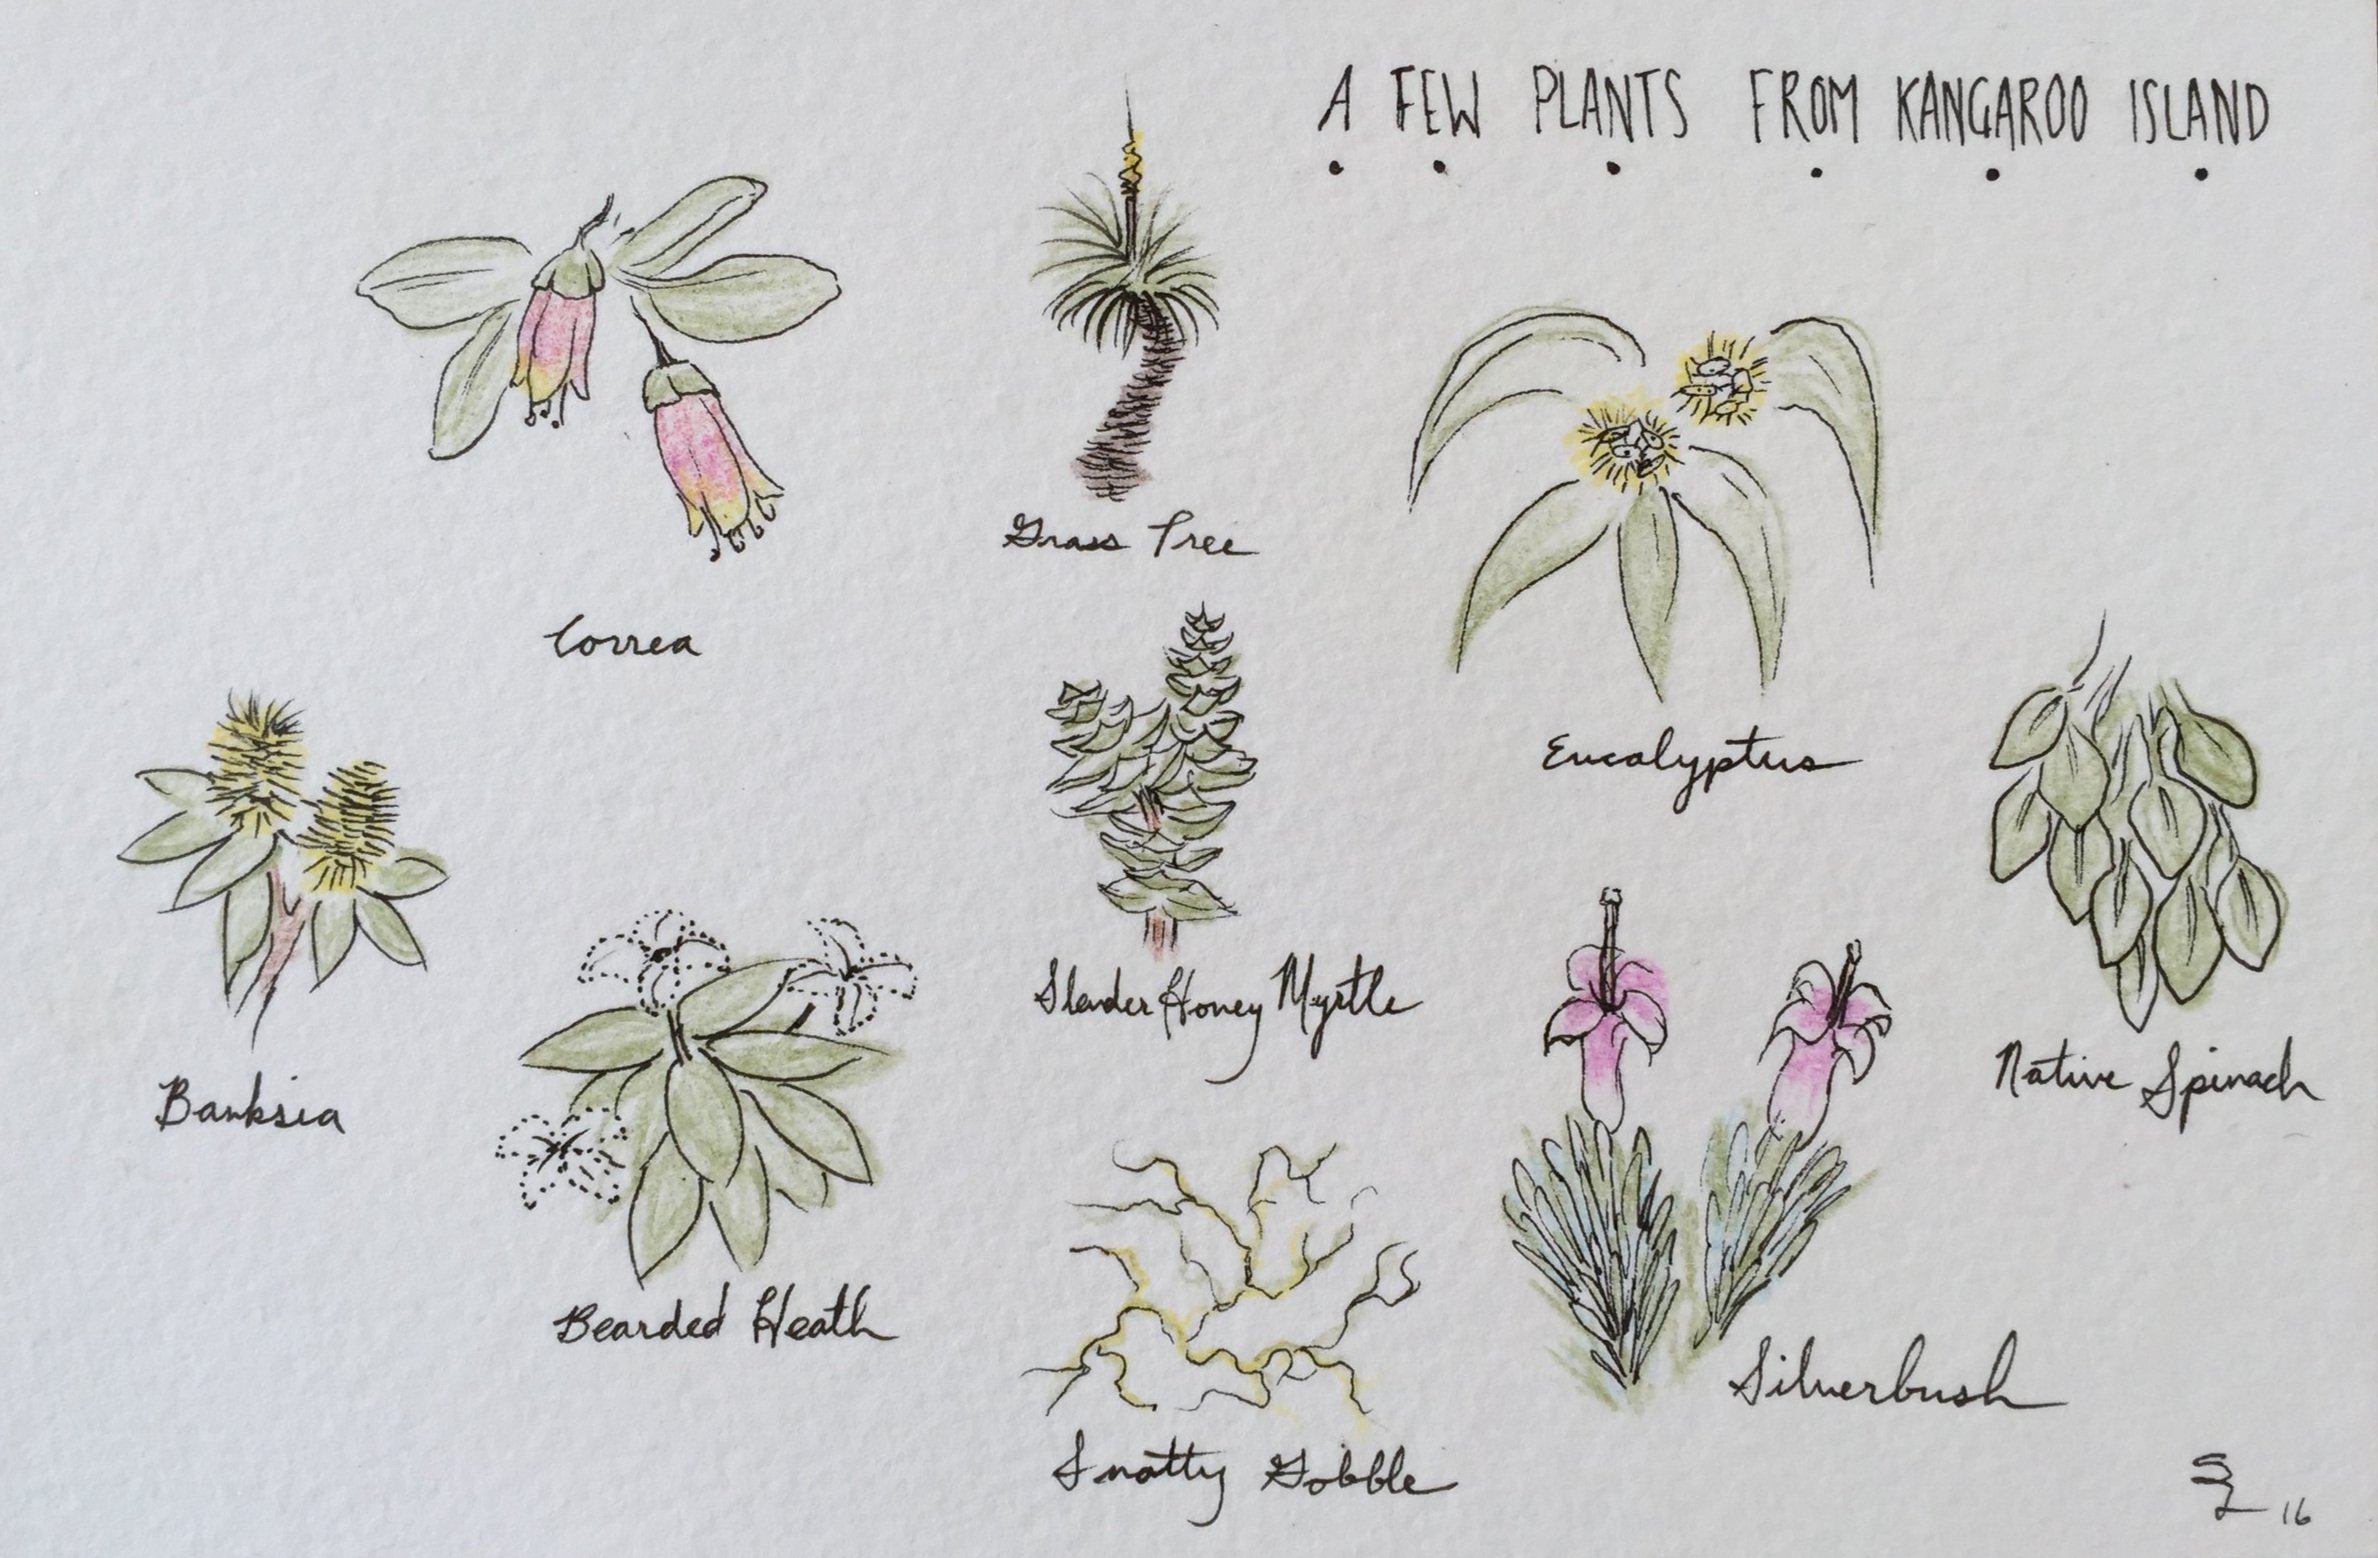 A FEW PLANTS FROM KANGAROO ISLAND
Grass Tree
Correa
Eucalyptus
Slender Honey Myrtle
Native Spinach
Banksia
Bearded Heath
Silverbush
Snotty Gobble
SL 16